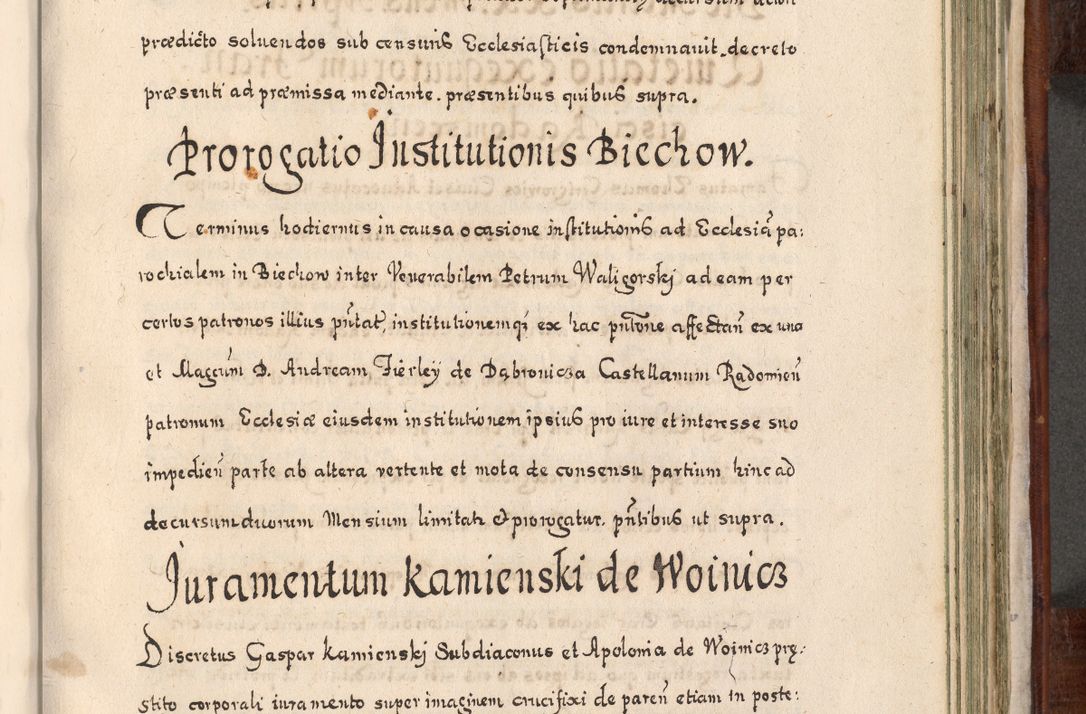 prædicto soluendos sub censuris Ecclesiasticis condemnauit decreto
præsenti ad præmissa mediante. præsentibus quibus supra.
Prorogatio Institutionis Biechow.
Terminus hodiernus in causa ocasione institutionis ad Ecclesiā pa:
rochialem in Biechow inter Venerabilem Petrum Waligorskj ad eam per
certos patronos illius pñtat, institutionemq; ex hac pñtone affectañ ex una
et Magcum D. Andream Fierley de Dąbrowicza Castellanum Radomieñ
patronum Ecclesiæ eiusdem institutionem ipsius pro iure et interesse suo
impedieñ parte ab altera vertente et mota de consensu partium hinc ad
decursum duorum Mensium limitat & prorogatur. pñtibus ut supra.
Juramentum Kamienski de Woinicz
Discretus Gaspar Kamienskj Subdiaconus et Apolonia de Wojnicz prę:
stito corporali iuramento super imaginem crucifixi de pareñ etiam in poste: